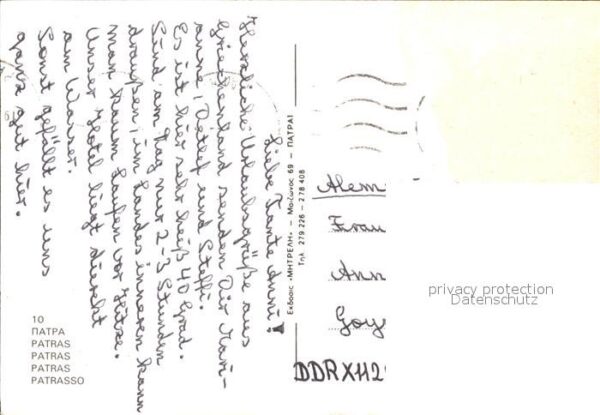 Liebe Tante Anni!
Herzliche Urlaubsgrüße aus
Griechenland senden Dir Mari-
anne, Detlef und Steffi.
Es ist hier sehr heiß 40 Grad.
Sind am Tag nur 2-3 Stunden
draußen, im Landesinneren kann
man kaum laufen vor Hitze.
Unser Hotel liegt direkt
am Wasser.
Sonst gefällt es uns
ganz gut hier.
10
ΠΑΤΡΑ
PATRAS
PATRAS
PATRAS
PATRASSO
Εκδοσις «ΜΗΤΡΕΛΗ» — Μαιζώνος 69 — ΠΑΤΡΑΙ
Τηλ. 279 226 – 278 408
Alem
Frau
Ann
Goy
DDR X112
privacy protection
Datenschutz